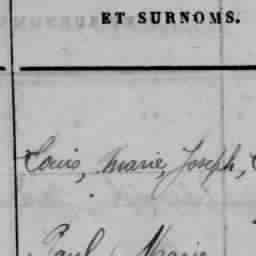 ET SURNOMS.
Louis, Marie, Joseph,
Paul Marie